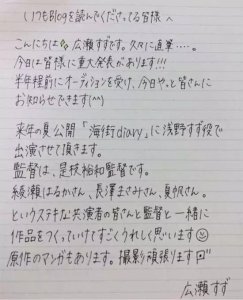 いつもBlogを読んでくださってる皆様へ
こんにちは 広瀬すずです。久々に直筆…。
今日は皆様に重大発表があります!!!
半年程前にオーディションを受け、今日やっと皆さんに
お知らせできます(^^)
来年の夏公開「海街diary」に浅野すず役で
出演させて頂きます。
監督は、是枝裕和監督です。
綾瀬はるかさん、長澤まさみさん、夏帆さん。
というステキな共演者の皆さんと監督と一緒に
作品をつくっていけてすごくうれしく思います
原作のマンガもあります。撮影頑張ります
広瀬すず